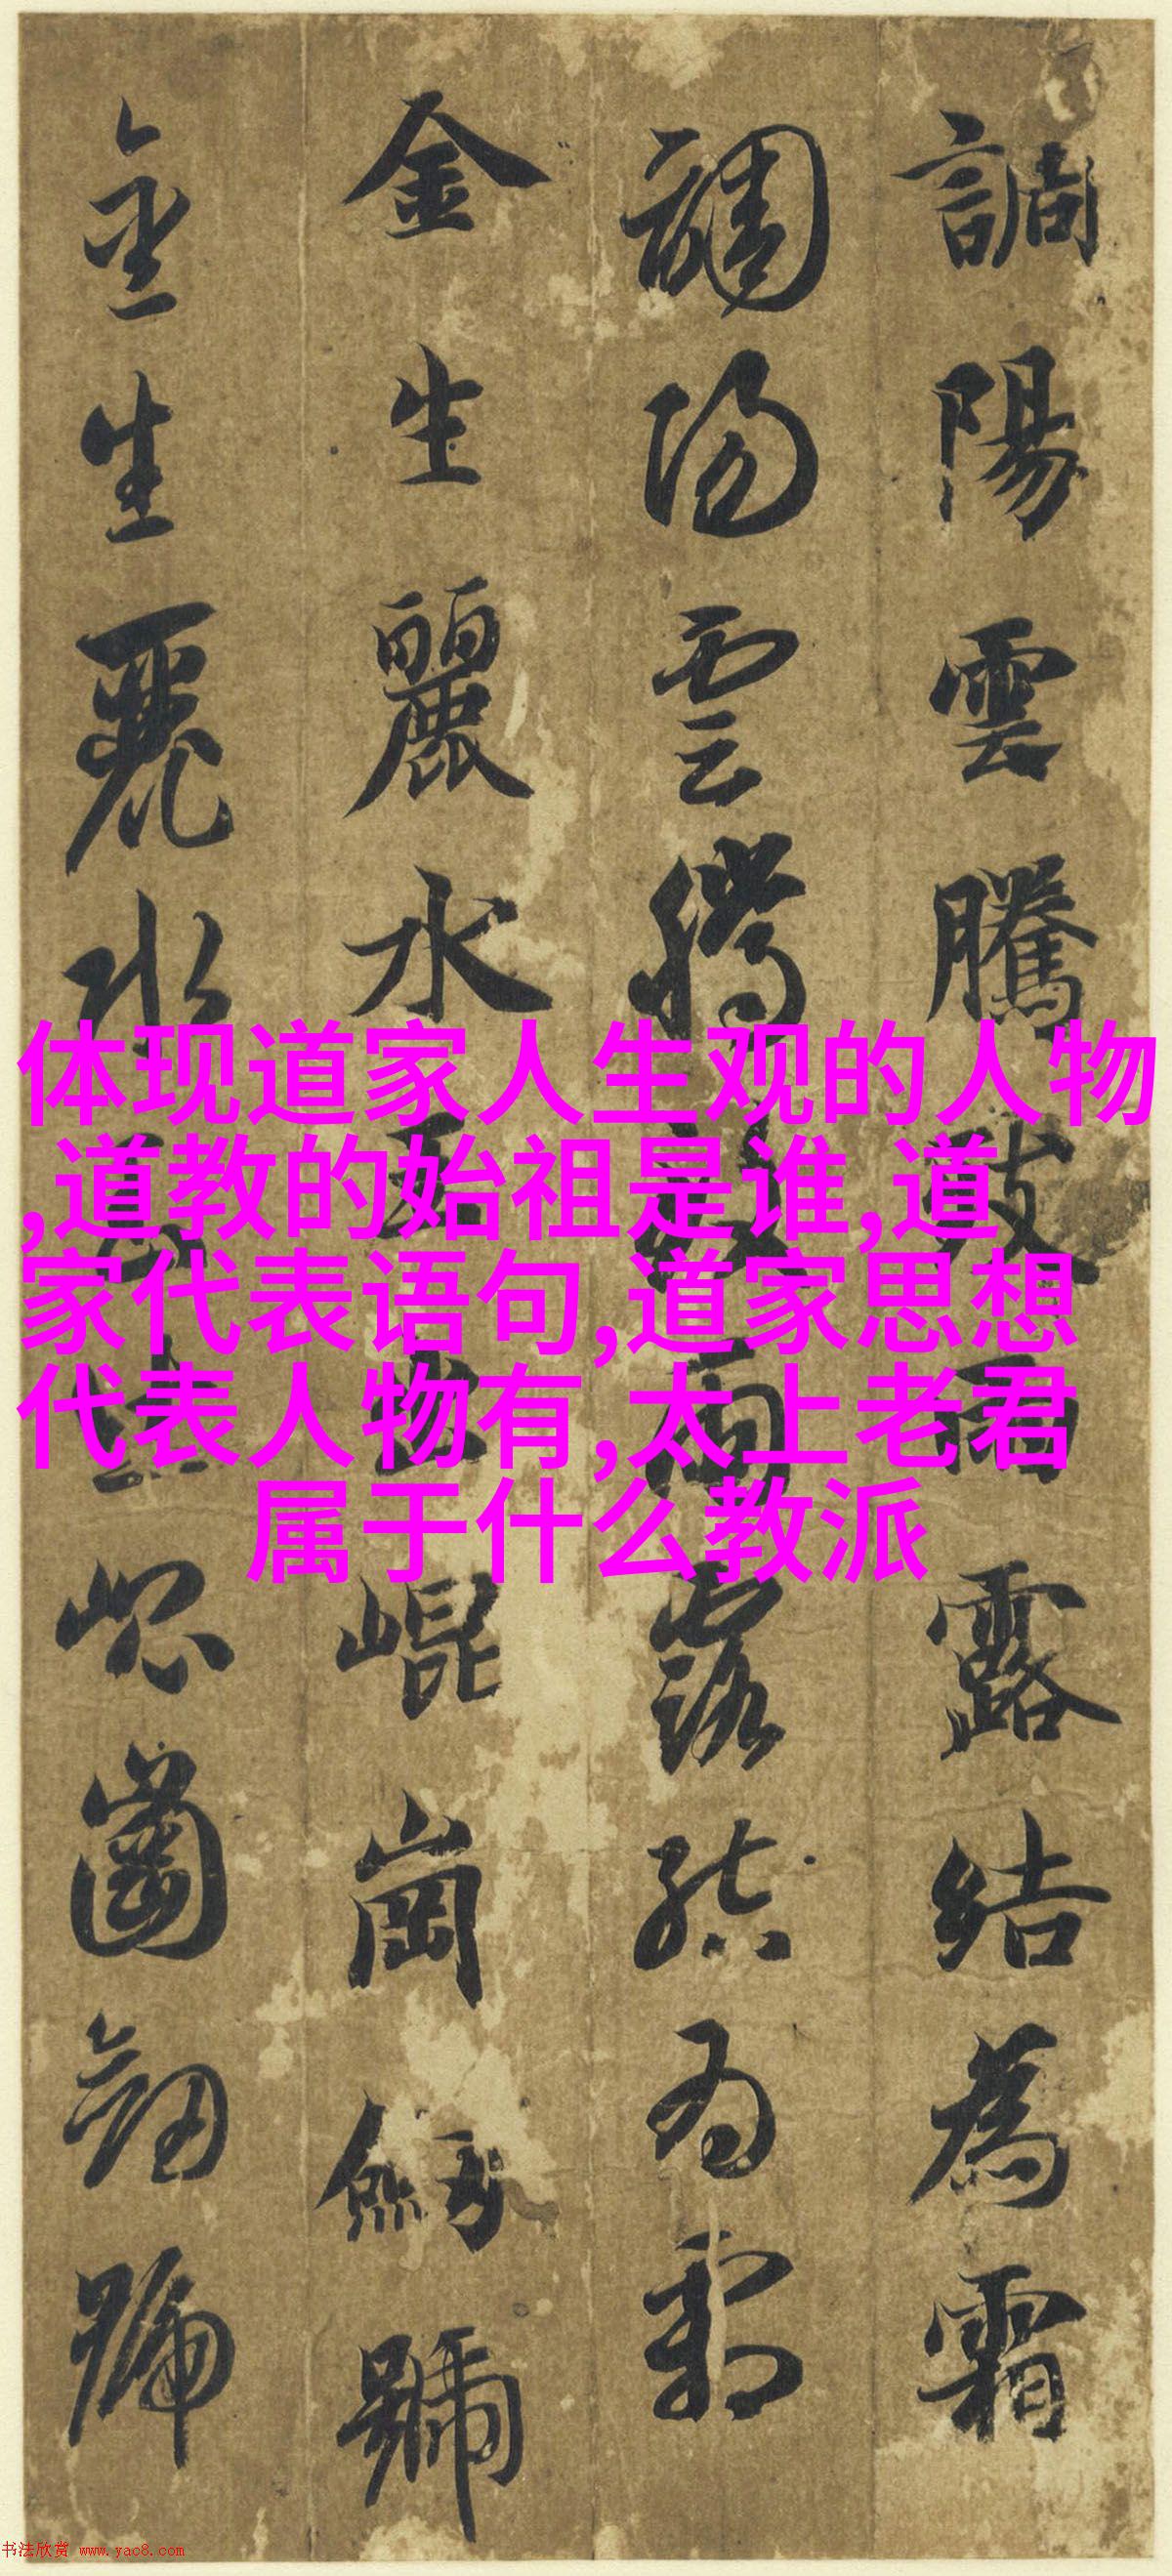 体现道家人生观的人物
,道教的始祖是谁,道
家代表语句,道家思想
代表人物有,太上老君
属于什么教派
調陽雲騰致雨露結為霜
調陽雲騰致雨露結為霜
金生麗水玉出崐崗劒號
金生麗水玉出崐崗劒號
书法欣赏 www.yac8.com